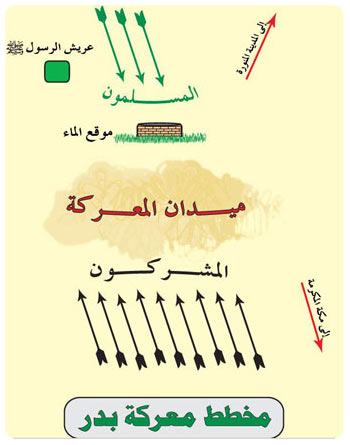 عريش الرسول ﷺ
إلى المدينة المنورة
المسلمون
موقع الماء
ميدان المعركة
المشركون
إلى مكة المكرمة
مخطط معركة بدر